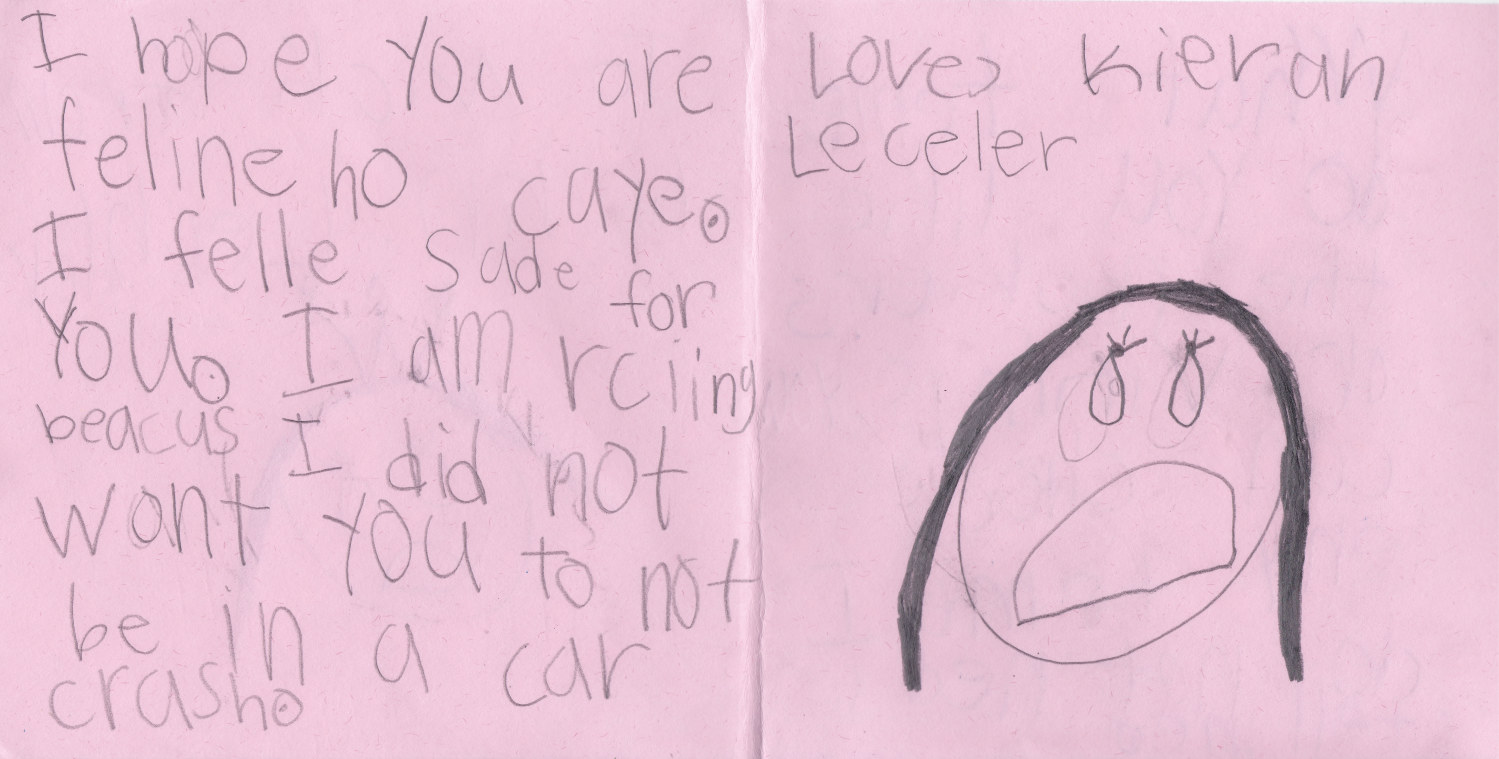 I hope you are
feline ho caye.
I felle sade for
you. I am rciing
beacus I did not
wont you to not
be in a car
crash.
Loves Kieran
Leceler